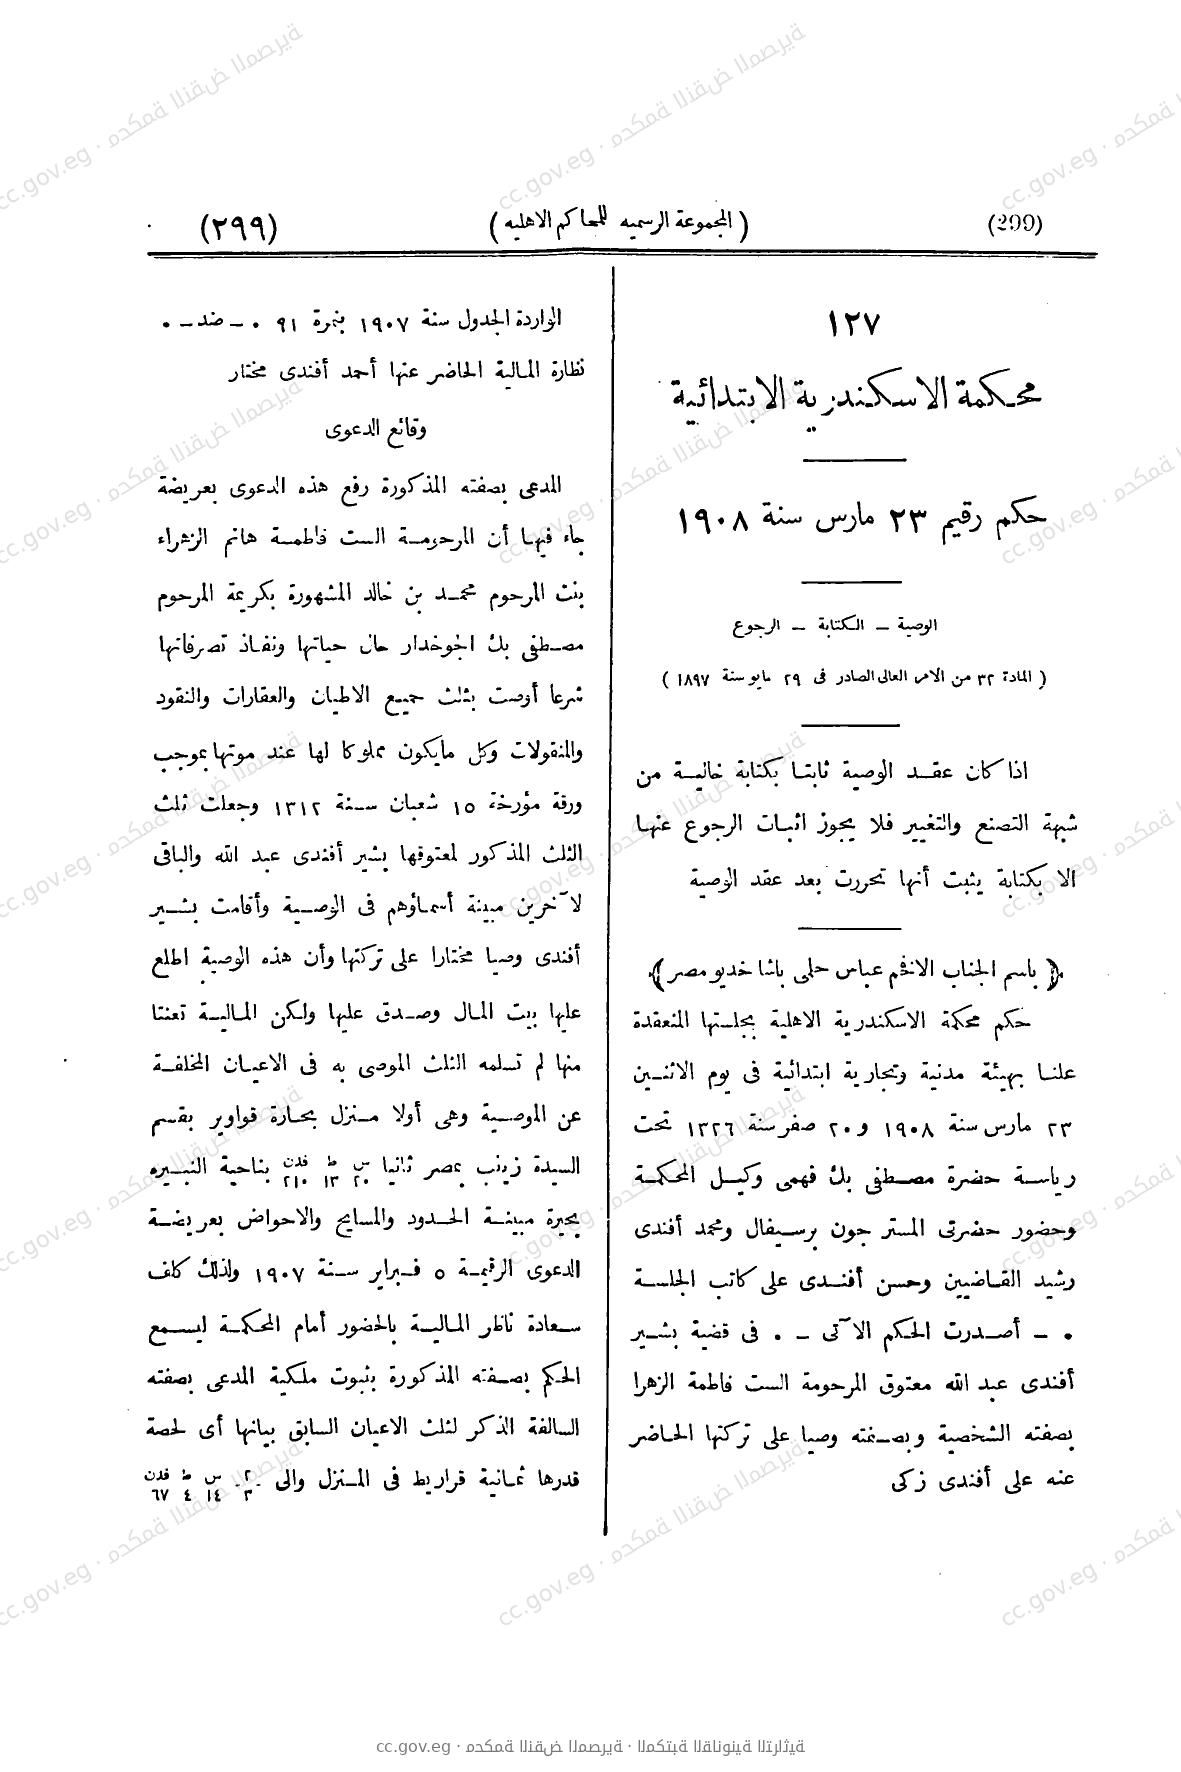 (299)
( المجموعة الرسميه للمحاكم الاهليه )
(٢٩٩)
١٢٧
محكمة الاسكندرية الابتدائية
حكم رقيم ٢٣ مارس سنة ١٩٠٨
الوصية ــ الكتابة ــ الرجوع
( المادة ٣٢ من الامر العالى الصادر فى ٢٩ مايو سنة ١٨٩٧ )
اذا كان عقد الوصية ثابتا بكتابة خالية من
شبهة التصنع والتغيير فلا يجوز اثبات الرجوع عنها
الا بكتابة يثبت أنها تحررت بعد عقد الوصية
﴿ باسم الجناب الافخم عباس حلمى باشا خديو مصر ﴾
حكم محكمة الاسكندرية الاهلية بجلستها المنعقدة
علنا بهيئة مدنية وتجارية ابتدائية فى يوم الاثنين
٢٣ مارس سنة ١٩٠٨ و ٢٠ صفر سنة ١٣٢٦ تحت
رياسة حضرة مصطفى بك فهمى وكيل المحكمة
وحضور حضرتى المستر جون برسيفال ومحمد أفندى
رشيد القاضيين وحسن أفندى على كاتب الجلسة
٠ ــ أصدرت الحكم الآتى ــ ٠ فى قضية بشير
أفندى عبد الله معتوق المرحومة الست فاطمة الزهرا
بصفته الشخصية وبصفته وصيا على تركتها الحاضر
عنه على أفندى زكى
الواردة الجدول سنة ١٩٠٧ بنمرة ٩١ ٠ ــ ضد ــ ٠
نظارة المالية الحاضر عنها أحمد أفندى مختار
وقائع الدعوى
المدعى بصفته المذكورة رفع هذه الدعوى بعريضة
جاء فيها أن المرحومة الست فاطمة هانم الزهراء
بنت المرحوم محمد بن خالد المشهورة بكريمة المرحوم
مصطفى بك الجوخدار حال حياتها ونفاذ تصرفاتها
شرعا أوصت بثلث جميع الاطيان والعقارات والنقود
والمنقولات وكل مايكون مملوكا لها عند موتها بموجب
ورقة مؤرخة ١٥ شعبان سنة ١٣١٢ وجعلت ثلث
الثلث المذكور لمعتوقها بشير أفندى عبد الله والباقى
لآخرين مبينة أسماؤهم فى الوصية وأقامت بشير
أفندى وصيا مختارا على تركتها وأن هذه الوصية اطلع
عليها بيت المال وصدق عليها ولكن المالية تعنتا
منها لم تسلمه الثلث الموصى به فى الاعيان المخلفة
عن الموصية وهى أولا منزل بحارة قواوير بقسم
السيدة زينب بمصر ثانيا س ٢٠ ط ١٣ فدن ٢١٠ بناحية النبيره
بحيرة مبينة الحدود والمسايح والاحواض بعريضة
الدعوى الرقيمة ٥ فبراير سنة ١٩٠٧ ولذلك كلف
سعادة ناظر المالية بالحضور أمام المحكمة ليسمع
الحكم بصفته المذكورة بثبوت ملكية المدعى بصفته
السالفة الذكر لثلث الاعيان السابق بيانها أى لحصة
قدرها ثمانية قراريط فى المنزل والى ٢/٣ س ١٤ ط ٤ فدن ٦٧
cc.gov.eg · محكمة النقض المصرية · المكتبة القانونية التراثية